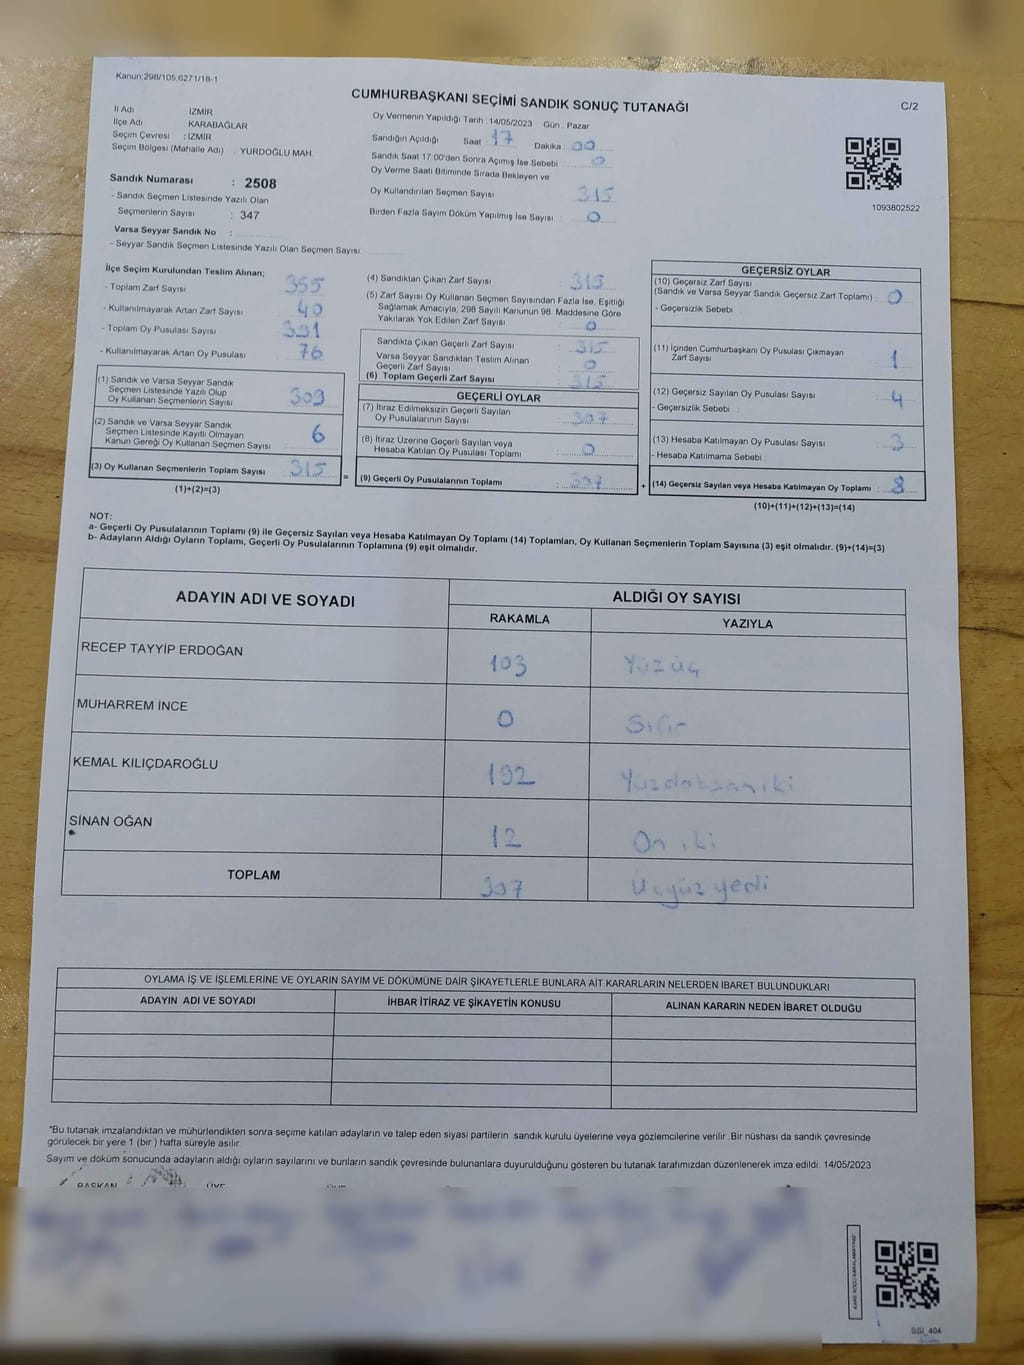 Kanun;298/105,6271/18-1
CUMHURBAŞKANI SEÇİMİ SANDIK SONUÇ TUTANAĞI
C/2
İl Adı İZMİR
İlçe Adı KARABAĞLAR
Seçim Çevresi : İZMİR
Seçim Bölgesi (Mahalle Adı) . YURDOĞLU MAH.
Sandık Numarası : 2508
- Sandık Seçmen Listesinde Yazılı Olan
Seçmenlerin Sayısı : 347
Varsa Seyyar Sandık No :
- Seyyar Sandık Seçmen Listesinde Yazılı Olan Seçmen Sayısı:
Oy Vermenin Yapıldığı Tarih : 14/05/2023 Gün : Pazar
Sandığın Açıldığı Saat : 17 Dakika : 00
Sandık Saat 17:00'den Sonra Açımış İse Sebebi : 0
Oy Verme Saati Bitiminde Sırada Bekleyen ve
Oy Kullandırılan Seçmen Sayısı 315
Birden Fazla Sayım Döküm Yapılmış İse Sayısı : 0
1093802522
İlçe Seçim Kurulundan Teslim Alınan;
- Toplam Zarf Sayısı : 355
- Kullanılmayarak Artan Zarf Sayısı : 40
- Toplam Oy Pusulası Sayısı : 391
- Kullanılmayarak Artan Oy Pusulası : 76
(1) Sandık ve Varsa Seyyar Sandık
Seçmen Listesinde Yazılı Olup
Oy Kullanan Seçmenlerin Sayısı : 309
(2) Sandık ve Varsa Seyyar Sandık
Seçmen Listesinde Kayıtlı Olmayan
Kanun Gereği Oy Kullanan Seçmen Sayısı : 6
(3) Oy Kullanan Seçmenlerin Toplam Sayısı : 315
(1)+(2)=(3)
=
(4) Sandıktan Çıkan Zarf Sayısı : 315
(5) Zarf Sayısı Oy Kullanan Seçmen Sayısından Fazla İse, Eşitliği
Sağlamak Amacıyla; 298 Sayılı Kanunun 98. Maddesine Göre
Yakılarak Yok Edilen Zarf Sayısı : 0
Sandıkta Çıkan Geçerli Zarf Sayısı : 315
Varsa Seyyar Sandıktan Teslim Alınan
Geçerli Zarf Sayısı : 0
(6) Toplam Geçerli Zarf Sayısı : 315
GEÇERLİ OYLAR
(7) İtiraz Edilmeksizin Geçerli Sayılan
Oy Pusulalarının Sayısı : 307
(8) İtiraz Üzerine Geçerli Sayılan veya
Hesaba Katılan Oy Pusulası Toplamı : 0
(9) Geçerli Oy Pusulalarının Toplamı : 307
+
GEÇERSİZ OYLAR
(10) Geçersiz Zarf Sayısı
(Sandık ve Varsa Seyyar Sandık Geçersiz Zarf Toplamı) : 0
- Geçersizlik Sebebi :
(11) İçinden Cumhurbaşkanı Oy Pusulası Çıkmayan
Zarf Sayısı : 1
(12) Geçersiz Sayılan Oy Pusulası Sayısı : 4
- Geçersizlik Sebebi :
(13) Hesaba Katılmayan Oy Pusulası Sayısı : 3
- Hesaba Katılmama Sebebi :
(14) Geçersiz Sayılan veya Hesaba Katılmayan Oy Toplamı : 8
(10)+(11)+(12)+(13)=(14)
NOT:
a- Geçerli Oy Pusulalarının Toplamı (9) ile Geçersiz Sayılan veya Hesaba Katılmayan Oy Toplamı (14) Toplamları, Oy Kullanan Seçmenlerin Toplam Sayısına (3) eşit olmalıdır. (9)+(14)=(3)
b- Adayların Aldığı Oyların Toplamı, Geçerli Oy Pusulalarının Toplamına (9) eşit olmalıdır.
ADAYIN ADI VE SOYADI ALDIĞI OY SAYISI
RAKAMLA YAZIYLA
RECEP TAYYİP ERDOĞAN 103 Yüzüç
MUHARREM İNCE 0 Sıfır
KEMAL KILIÇDAROĞLU 192 Yüzdoksaniki
SİNAN OĞAN 12 On iki
TOPLAM 307 Üçyüz yedi
OYLAMA İŞ VE İŞLEMLERİNE VE OYLARIN SAYIM VE DÖKÜMÜNE DAİR ŞİKAYETLERLE BUNLARA AİT KARARLARIN NELERDEN İBARET BULUNDUKLARI
ADAYIN ADI VE SOYADI İHBAR İTİRAZ VE ŞİKAYETİN KONUSU ALINAN KARARIN NEDEN İBARET OLDUĞU
*Bu tutanak imzalandıktan ve mühürlendikten sonra seçime katılan adayların ve talep eden siyasi partilerin sandık kurulu üyelerine veya gözlemcilerine verilir .Bir nüshası da sandık çevresinde
görülecek bir yere 1 (bir ) hafta süreyle asılır.
Sayım ve döküm sonucunda adayların aldığı oyların sayılarını ve bunların sandık çevresinde bulunanlara duyurulduğunu gösteren bu tutanak tarafımızdan düzenlenerek imza edildi. 14/05/2023
BAŞKAN ÜYE ÜYE
SSİ_404